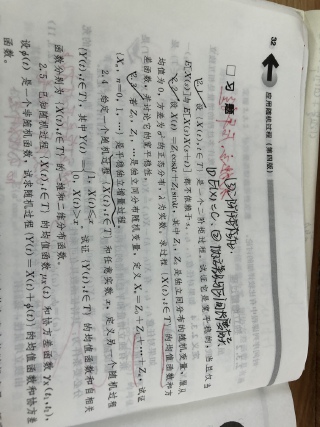 32
应用随机过程(第四版)
习 题
2.1 设{X(t),t∈T}是一个二阶矩过程,试证它是宽平稳的,当且仅当
E[X(s)]与E[X(s)X(s+t)]都不依赖于s.
2.2 设X(t)=Z₁cosλt+Z₂sinλt,其中Z₁,Z₂是独立同分布的随机变量,服从
均值为0,方差为σ²的正态分布,λ为实数,求过程{X(t),t∈T}的均值函数和方
差函数,并讨论它的宽平稳性.
2.3 若Z₁,Z₂,…是独立同分布随机变量,定义Xₙ=Z₁+Z₂+…+Zₙ,试证
{Xₙ,n=0,1,…}是平稳独立增量过程.
2.4 给定一个随机过程{X(t),t∈T}和任意实数x,定义另一个随机过程
{Y(t),t∈T},其中Y(t)={1,X(t)≤x, 0,X(t)>x. 试证{Y(t),t∈T}的均值函数和自相关
函数分别为{X(t),t∈T}的一维和二维分布函数.
2.5 已知随机过程{X(t),t∈T}的均值函数μX(t)和协方差函数γX(t₁,t₂),
设φ(t)是一个非随机函数,试求随机过程{Y(t)=X(t)+φ(t)}的均值函数和协方差
函数.